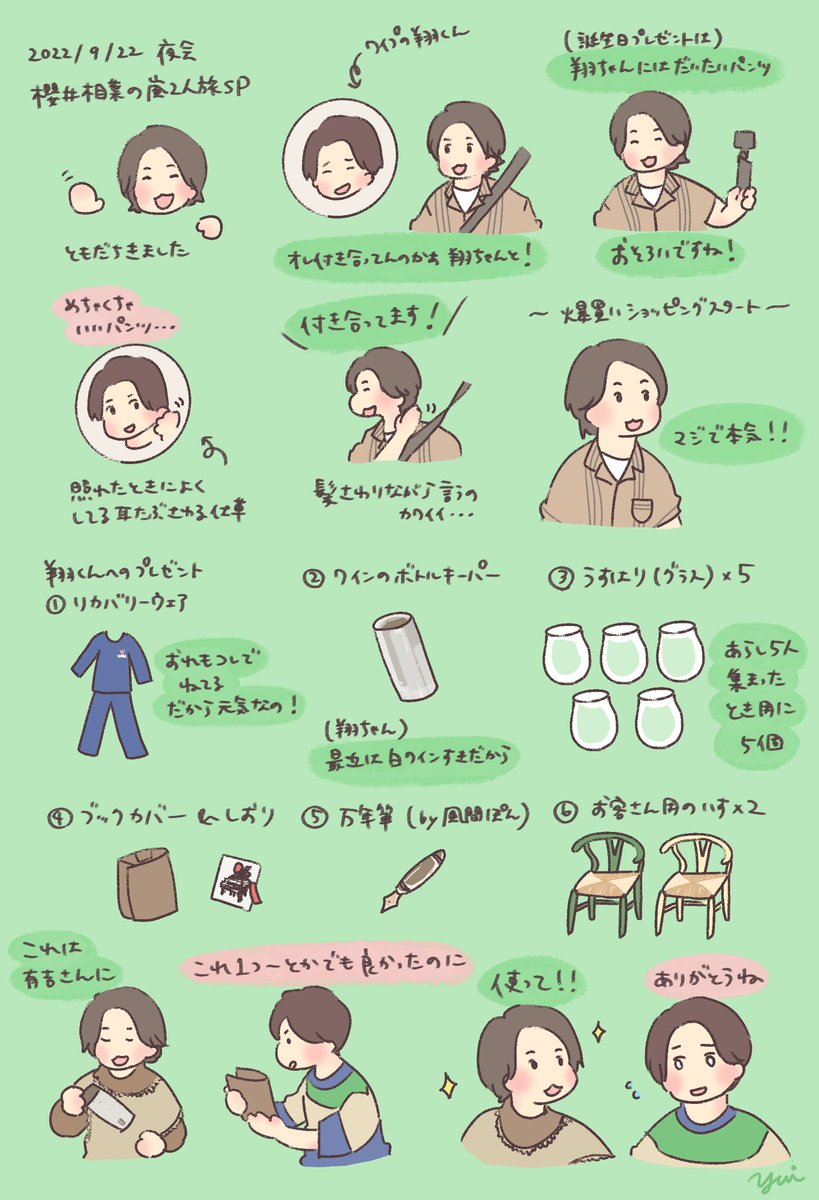 2022/9/22 夜会
櫻井相葉の嵐2人旅SP
ともだちきました
ワイプの翔くん
オレ付き合ってんのかぁ 翔ちゃんと!
(誕生日プレゼントは)
翔ちゃんにはだいたいパンツ
おそろいですね!
めちゃくちゃ
いいパンツ・・・
照れたときによく
してる耳たぶさわる仕草
付き合ってます!
髪さわりながら言うの
カワイイ・・・
〜 爆買いショッピングスタート 〜
マジで本気!!
翔くんへのプレゼント
① リカバリーウェア
おれもコレで
ねてる
だから元気なの!
② ワインのボトルキーパー
(翔ちゃん)
最近は白ワインすきだから
③ うすはり(グラス)×5
あらし5人
集まった
とき用に
5個
④ ブックカバー &しおり
⑤ 万年筆 (by 風間ぽん)
⑥ お客さん用のいす×2
これは
有吉さんに
これ1つ〜とかでも良かったのに
使って!!
ありがとうね
yui